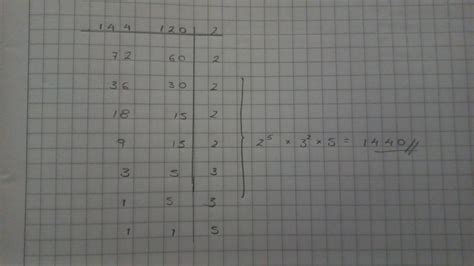 144 120 2
72 60 2
36 30 2
18 15 2
9 15 2 2⁵ × 3² × 5 = 1440//
3 5 3
1 5 3
1 1 5